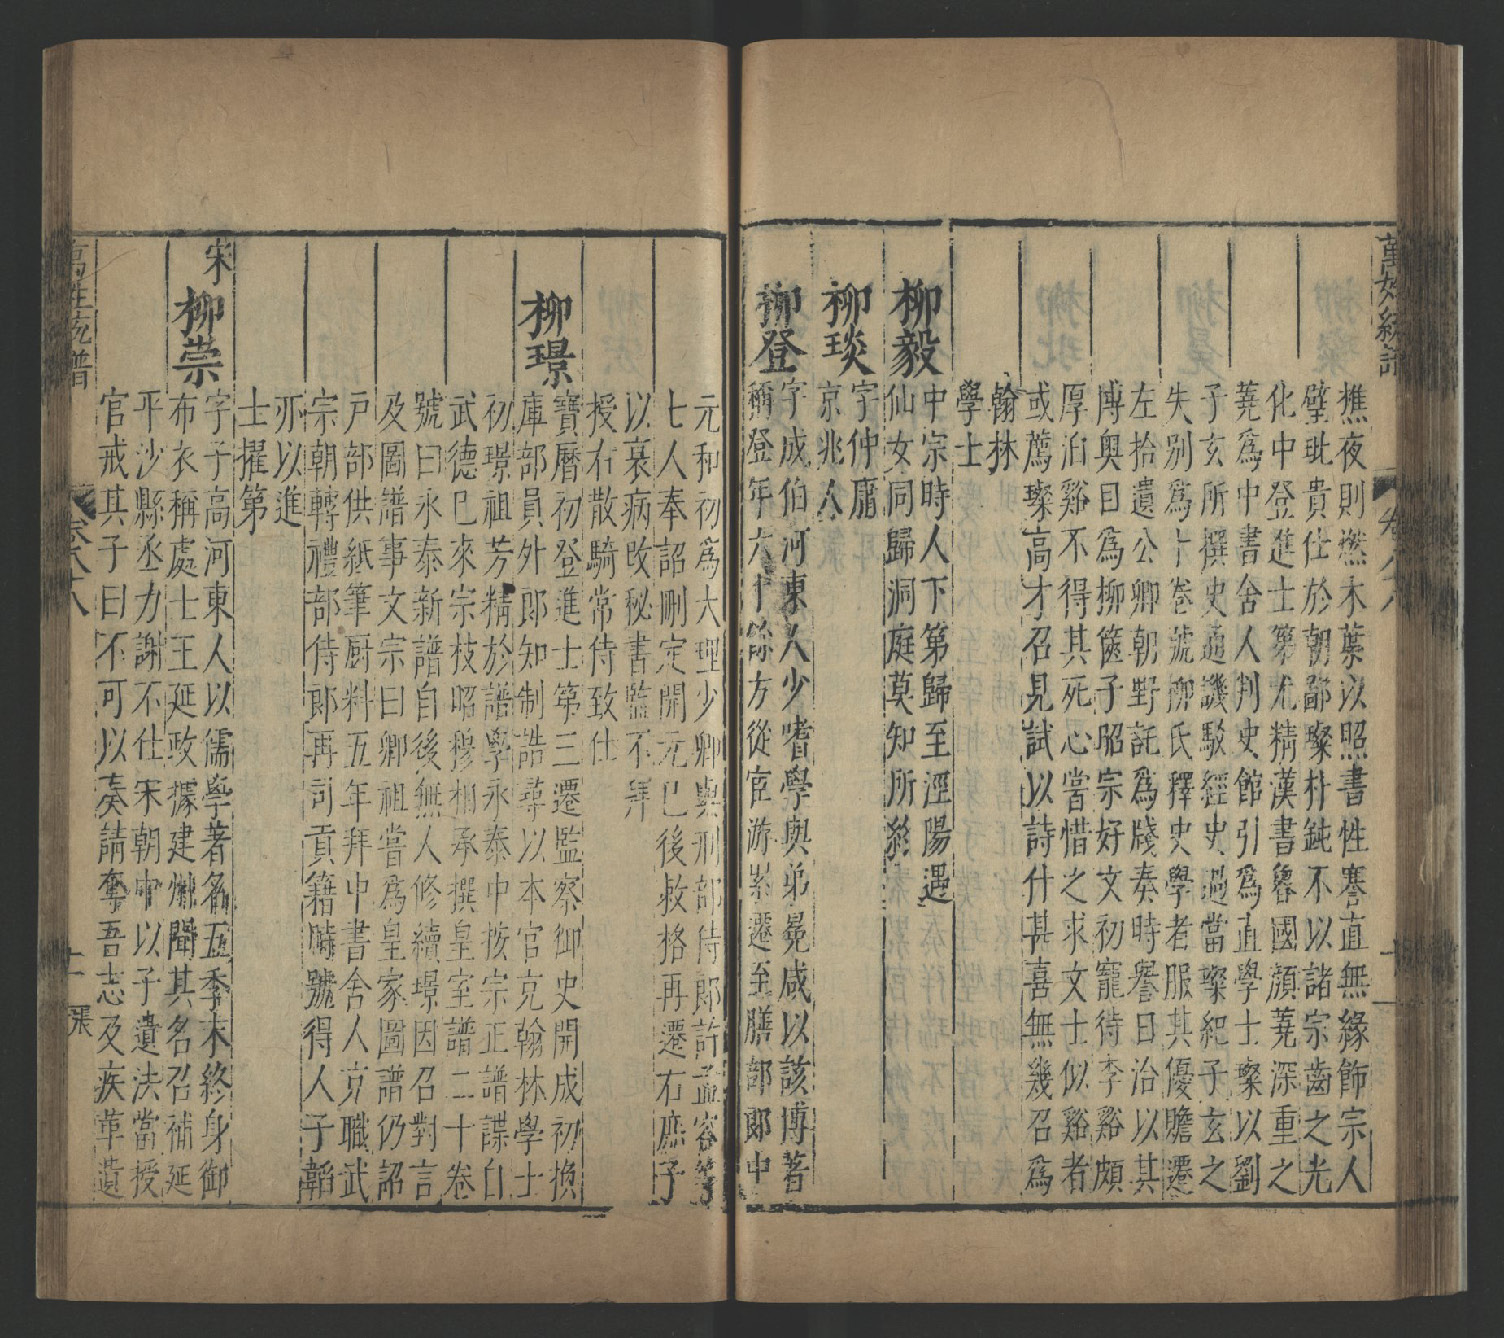 萬姓統譜
卷八八
樵夜則燃木葉以照書性蹇直無緣飾宗人
璧玭貴仕於朝鄙璨朴鈍不以諸宗齒之光
化中登進士第尤精漢書魯國顏蕘深重之
蕘爲中書舍人判史館引爲直學士璨以劉
子玄所撰史通譏駁經史過當璨紀子玄之
失別爲十卷號柳氏釋史學者服其優贍遷
左拾遺公卿朝野託爲牋奏時譽日洽以其
博奧目爲柳篋子昭宗好文初寵待李谿頗
厚洎谿不得其死心嘗惜之求文士似谿者
或薦璨高才召見試以詩什甚喜無幾召爲
翰林
學士
柳毅
中宗時人下第歸至涇陽遇
仙女同歸洞庭莫知所終
柳琰
字仲庸
京兆人
柳登
字成伯河東人少嗜學與弟冕咸以該博著
稱登年六十餘方從宦游累遷至膳部郎中
元和初爲大理少卿與刑部侍郎許孟容等
七人奉詔刪定開元已後敕格再遷右庶子
以衰病改秘書監不拜
授右散騎常侍致仕
柳璟
寶曆初登進士第三遷監察御史開成初換
庫部員外郎知制誥尋以本官充翰林學士
初璟祖芳精於譜學永泰中按宗正譜諜自
武德已來宗枝昭穆相承撰皇室譜二十卷
號曰永泰新譜自後無人修續璟因召對言
及圖譜事文宗曰卿祖嘗爲皇家圖譜仍詔
戶部供紙筆厨料五年拜中書舍人充職武
宗朝轉禮部侍郎再司貢籍時號得人子韜
亦以進
士擢第
宋
柳崇
字子高河東人以儒學著名五季末終身御
布衣稱處士王延政據建州聞其名召補延
平沙縣丞力謝不仕宋朝中以子遺法當授
官戒其子曰不可以奏請奪吾志及疾革遺
卷八十八
十一